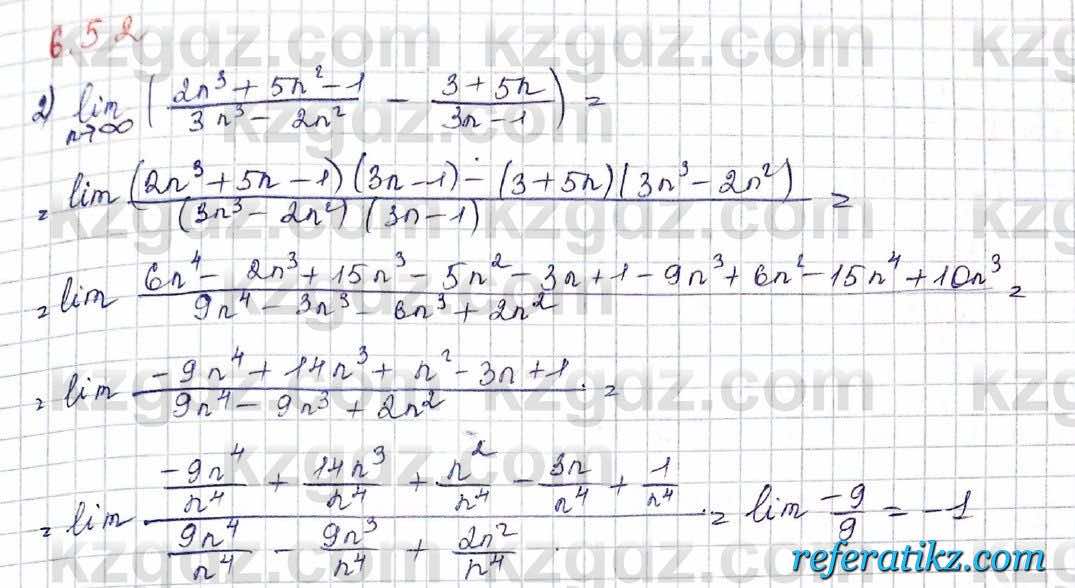 6.52
2) lim n→∞ ( (2n³ + 5n² - 1)/(3n³ - 2n²) - (3 + 5n)/(3n - 1) ) =
= lim ((2n³ + 5n - 1)(3n - 1) - (3 + 5n)(3n³ - 2n²))/((3n³ - 2n²)(3n - 1)) =
= lim (6n⁴ - 2n³ + 15n³ - 5n² - 3n + 1 - 9n³ + 6n² - 15n⁴ + 10n³)/(9n⁴ - 3n³ - 6n³ + 2n²) =
= lim (-9n⁴ + 14n³ + n² - 3n + 1)/(9n⁴ - 9n³ + 2n²) =
= lim (-9n⁴/n⁴ + 14n³/n⁴ + n²/n⁴ - 3n/n⁴ + 1/n⁴)/(9n⁴/n⁴ - 9n³/n⁴ + 2n²/n⁴) = lim -9/9 = -1
kzgdz.com
referatikz.com